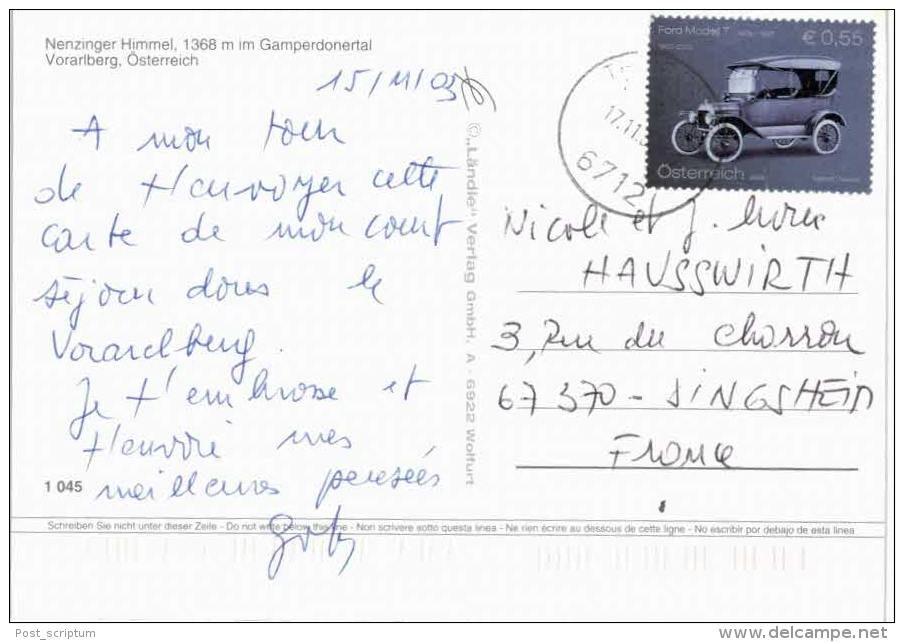 Nenzinger Himmel, 1368 m im Gamperdonertal
Vorarlberg, Österreich
15/11/03
A mon tour
de t'envoyer cette
carte de mon court
séjour dans le
Vorarlberg.
Je t'embrasse et
t'envoie mes
meilleures pensées
1 045
© „Ländle" Verlag GmbH, A - 6922 Wolfurt
Ford Model T
€ 0,55
Österreich
17.11.
6712
Nicole et J.
HAUSSWIRTH
3, Rue du Charron
67370 - SINGSHEIM
France
Schreiben Sie nicht unter dieser Zeile - Do not write below this line - Non scrivere sotto questa linea - Ne rien écrire au dessous de cette ligne - No escribir por debajo de esta linea
Post_scriptum
delcampe.net